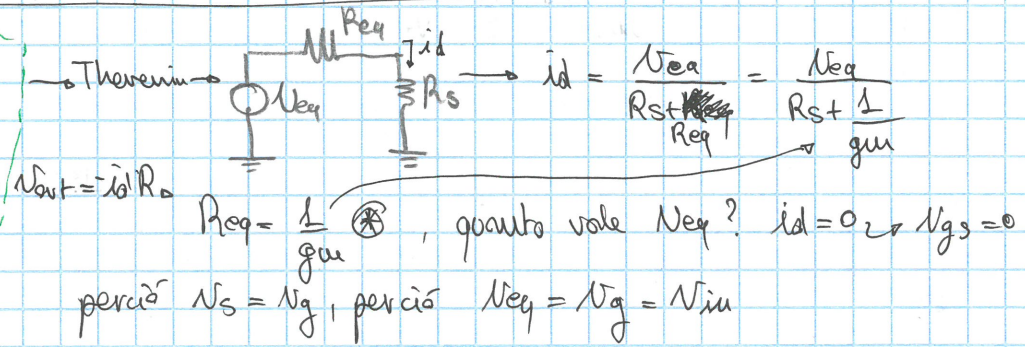 Req
→ Thevenin → Veq ↓id Rs → id = Veq / (Rs + Req) = Veq / (Rs + 1/gm)
Vout = -id RD
Req = 1/gm ⊛, quanto vale Veq? id = 0 → Vgs = 0
perciò Vs = Vg, perciò Veq = Vg = Vin